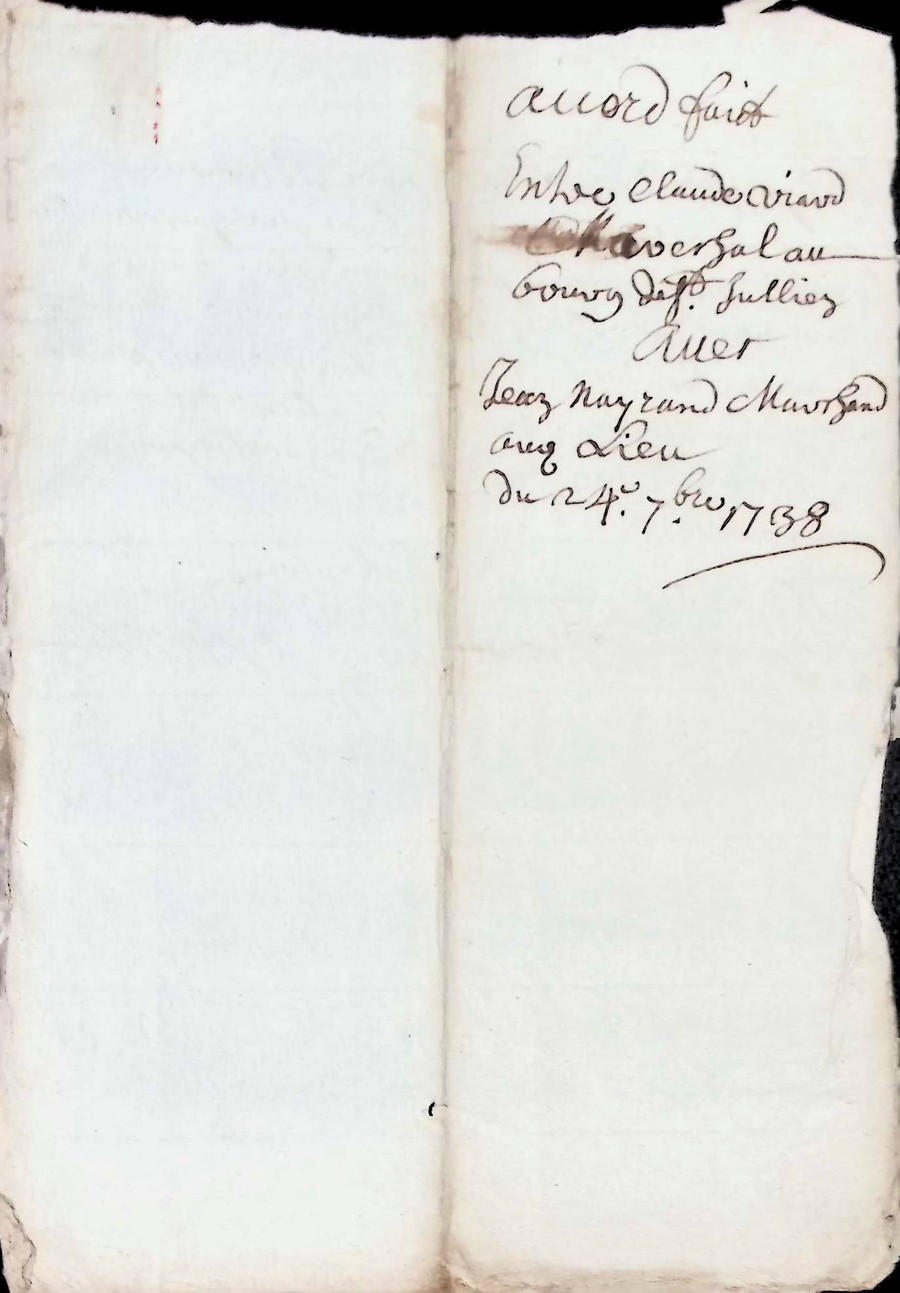 accord faict
Entre Claude Viard
Mareshal au
bourg de St. Jullien
Avec
Jean Nayrand Marchand
audt Lieu
du 24e. 7.bre 1738